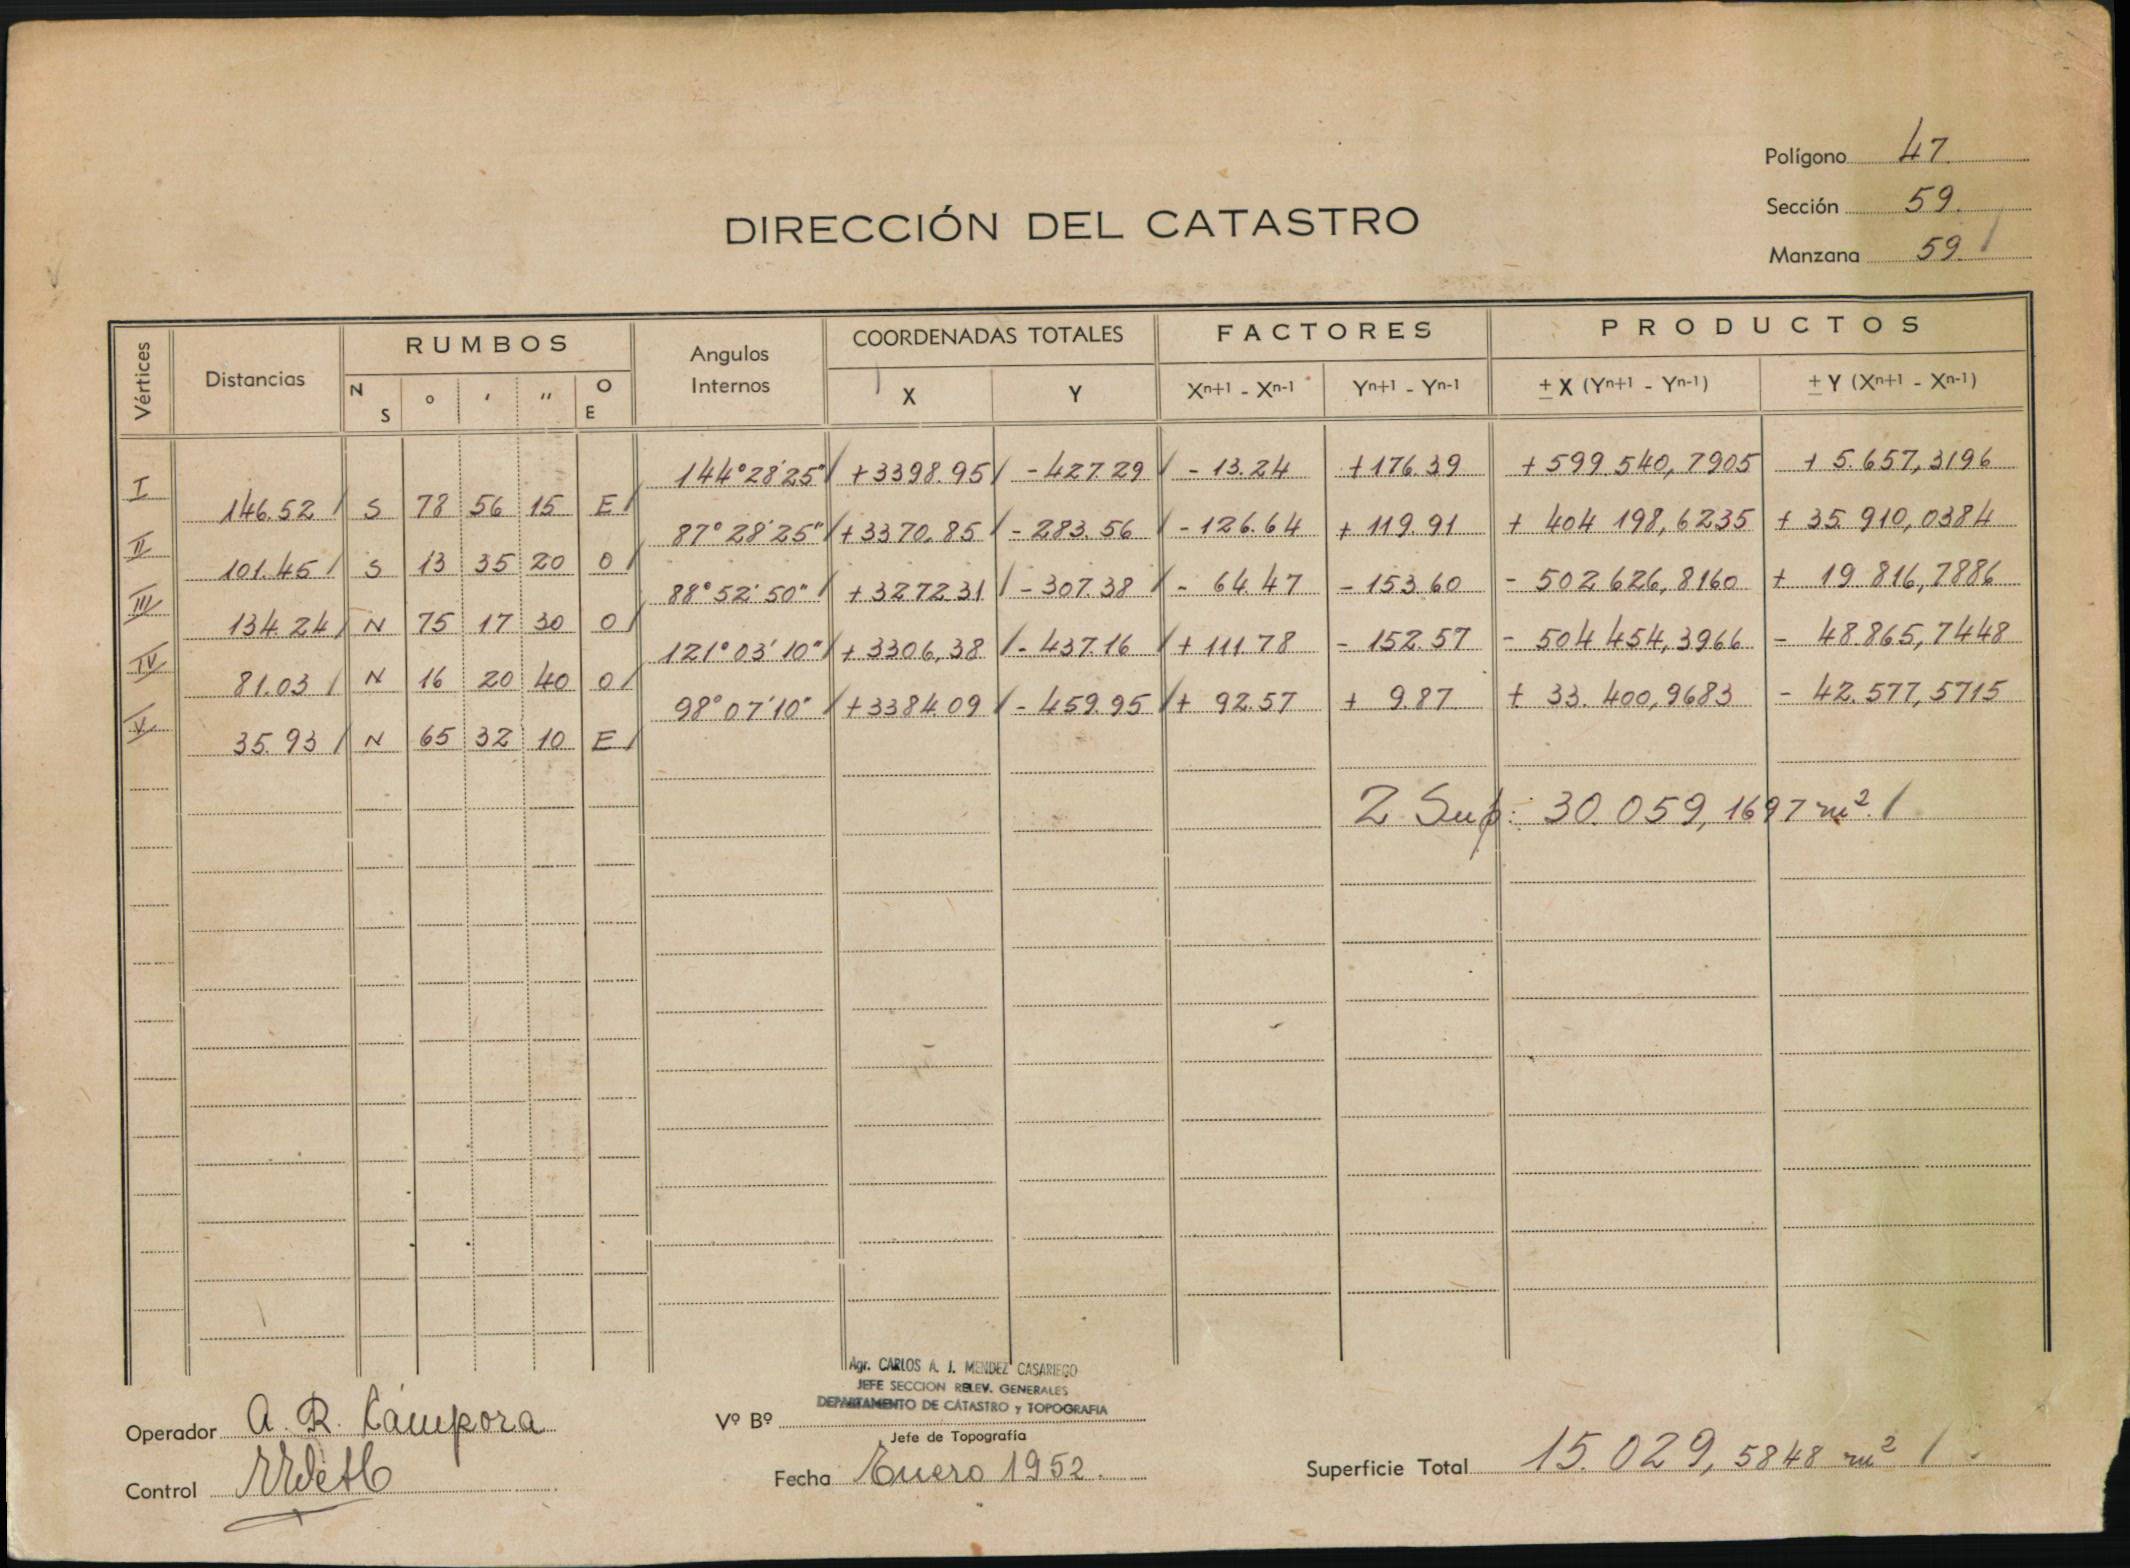 Polígono 47.
Sección 59.
Manzana 59. /
DIRECCIÓN DEL CATASTRO
Vértices Distancias RUMBOS Angulos Internos COORDENADAS TOTALES FACTORES PRODUCTOS
N S ° ' " O E X Y Xn+1 - Xn-1 Yn+1 - Yn-1 ± X (Yn+1 - Yn-1) ± Y (Xn+1 - Xn-1)
144°28'25" / +3398.95 / - 427.29 / - 13.24 +176.39 +599.540,7905 + 5.657,3196
I 146.52 / S 78 56 15 E /
87°28'25" / +3370.85 / - 283.56 / - 126.64 + 119.91 + 404 198,6235 + 35.910,0384
II 101.45 / S 13 35 20 O /
88°52'50" / +3272.31 / - 307.38 / - 64.47 - 153.60 - 502 626,8160 + 19 816,7886
III 134.24 / N 75 17 30 O /
121°03'10" / +3306,38 / - 437.16 / + 111.78 - 152.57 - 504 454,3966 - 48.865,7448
IV 81.03 / N 16 20 40 O /
98°07'10" / +3384.09 / - 459.95 / + 92.57 + 9.87 + 33.400,9683 - 42.577,5715
V 35.93 / N 65 32 10 E /
2 Sup: 30.059,1697 m². /
Agr. CARLOS A. J. MENDEZ CASARIEGO
JEFE SECCION RELEV. GENERALES
DEPARTAMENTO DE CATASTRO y TOPOGRAFIA
Operador A. R. Cámpora
Vº Bº
Jefe de Topografía
Control
Fecha Enero 1952.
Superficie Total 15.029,5848 m² /.